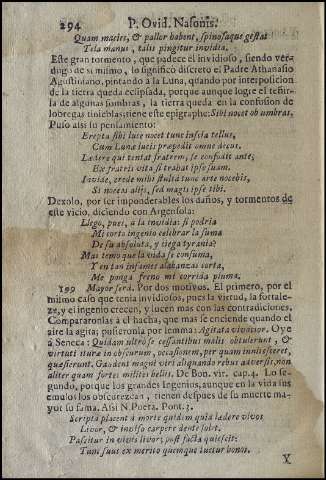 294 P. Ovid. Nasonis.
Quam macies, & pallor habent, spinosaque gestat
Tela manus, talis pingitur invidia.
Este gran tormento, que padece el invidioso, siendo ver-
dugo de si mismo, lo significò discreto el Padre Athanasio
Agustiniano, pintando à la Luna, quando por interposicion
de la tierra queda ecclipsada, porque aunque logre el tesur-
la de algunas sombras, la tierra queda en la confusion de
lobregas tinieblas: tiene este epigraphe: Sibi nocet ob umbras.
Puso assi su pensamiento:
Erepta sibi luce nocet tunc inscia tellus,
Cum Lunæ lucis præpedit omne decus.
Lædere qui tentat fratrem, se confodit ante;
Ex fratris vita si trahat ipse suam.
Invide, crede mihi stulta tunc arte nocebis,
Si noceas alijs, sed magis ipse tibi.
Dexolo, por ser imponderables los daños, y tormentos de
este vicio, diciendo con Argensola:
Llego, pues, a la invidia: si podria
Mi corto ingenio celibrar la suma
De su absoluta, y ciega tyrania?
Mas temo que la vida se consuma,
Y en tan infames alabanzas corta,
Me ponga freno mi corrida pluma.
199 Mayor será. Por dos motivos. El primero, por el
mismo caso que tenia invidiosos, pues la virtud, la fortale-
za, y el ingenio crecen, y lucen mas con las contradiciones.
Compararonlas à el hacha, que mas se enciende quando el
aire la agita; pusieronla por lemma: Agitata vivacior. Oye
à Seneca: Quidam ultrò se cessantibus malis obtulerunt, &
virtutiituræ in obscurum, occasionem, per quam innitesceret,
quæsierunt. Gaudent magni viri aliquando rebus adversis, non
aliter quam fortes milites bellis. De Bon. vir. cap. 4. Lo se-
gundo, porque los grandes Ingenios, aunque en la vida sus
emulos los obscurezcan, tienen despues de su muerte ma-
yor su fama. Assi N. Poeta. Pont. 3.
Scripta placent à morte quidem quia lædere vivos
Livor, & iniusto carpere dente solet.
Pascitur in vivis livor, post facta quiescit:
Tunc suus ex merito quemque tuetur honos.
V